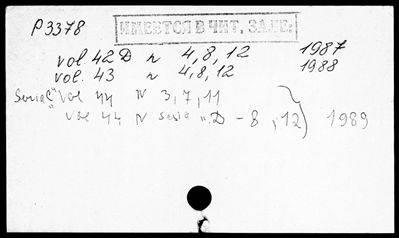 P3378 ИМЕЕТСЯ В ЧИТ. ЗАЛЕ:
vol 42D n 4,8,12 1987
vol. 43 n 4,8,12 1988
Seria "C" vol 44 N 3,7,11
vol 44 N seria "D - 8, 12) 1989